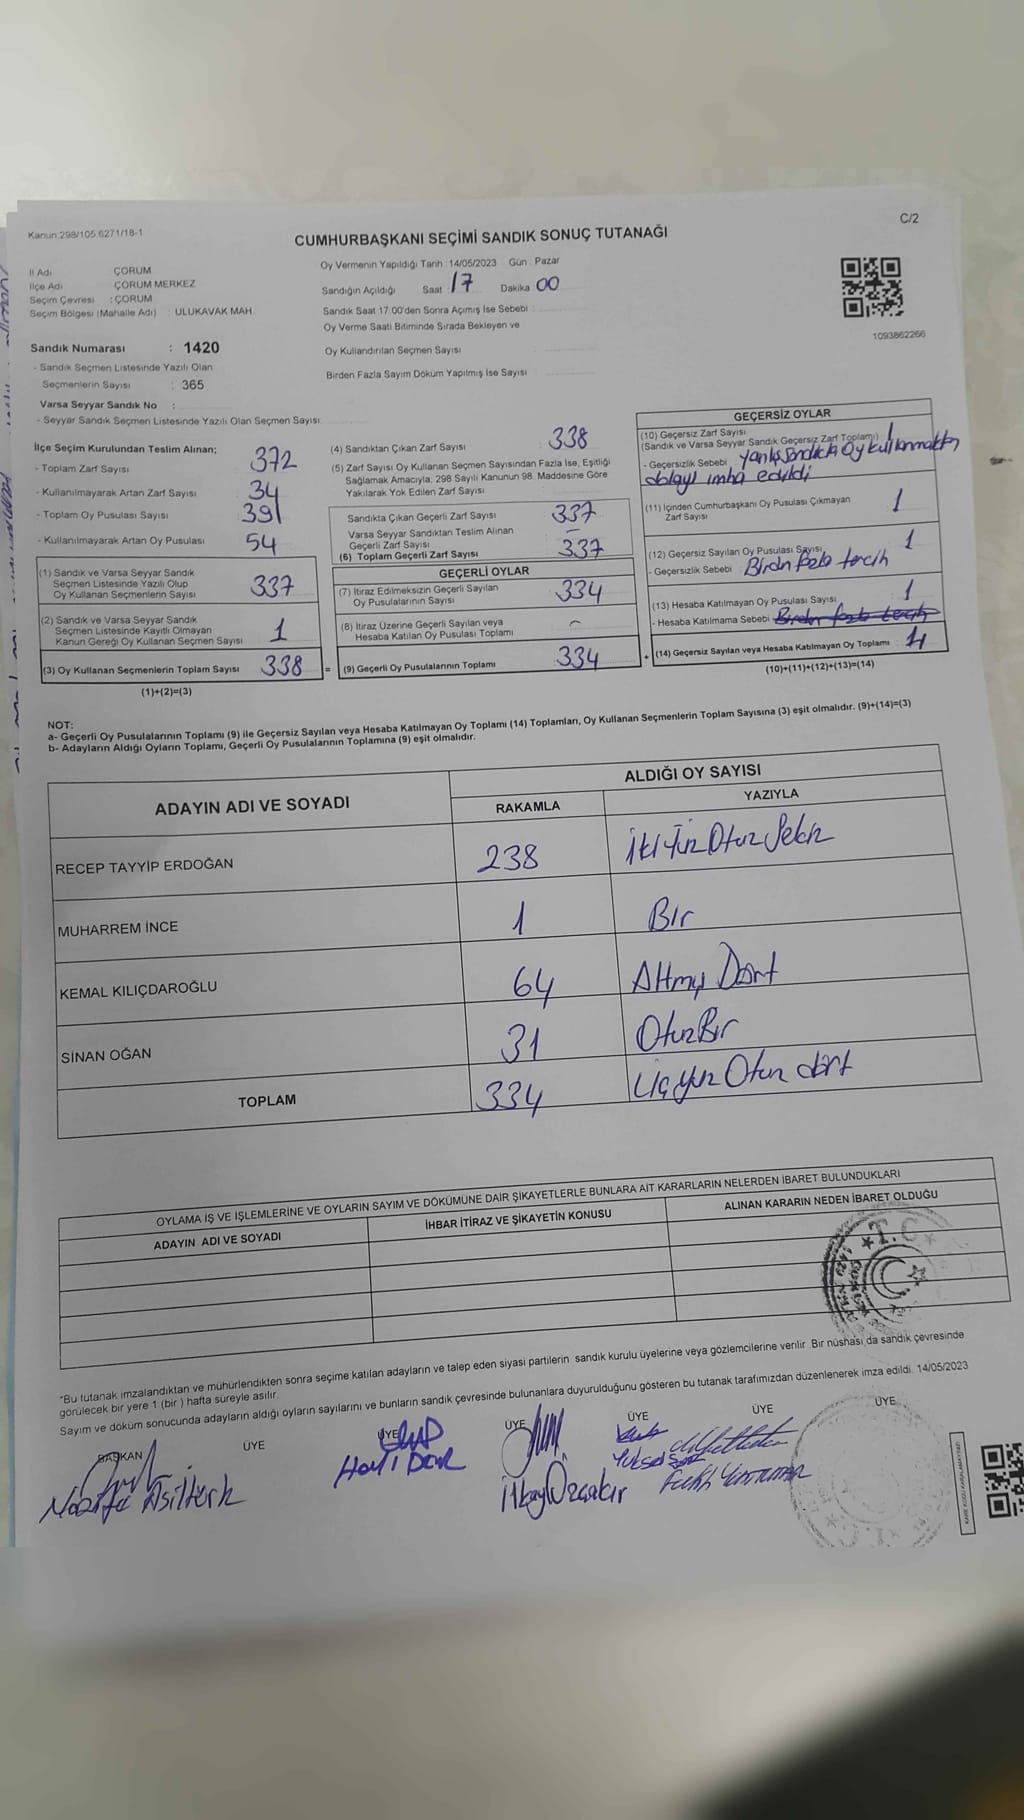 C/2
Kanun:298/105 6271/18-1
CUMHURBAŞKANI SEÇİMİ SANDIK SONUÇ TUTANAĞI
İl Adı ÇORUM
İlçe Adı ÇORUM MERKEZ
Seçim Çevresi : ÇORUM
Seçim Bölgesi (Mahalle Adı) : ULUKAVAK MAH.
Sandık Numarası : 1420
- Sandık Seçmen Listesinde Yazılı Olan
Seçmenlerin Sayısı : 365
Varsa Seyyar Sandık No :
- Seyyar Sandık Seçmen Listesinde Yazılı Olan Seçmen Sayısı:
Oy Vermenin Yapıldığı Tarih :14/05/2023 Gün : Pazar
Sandığın Açıldığı Saat 17 Dakika 00
Sandık Saat 17:00'den Sonra Açımış İse Sebebi :
Oy Verme Saati Bitiminde Sırada Bekleyen ve
Oy Kullandırılan Seçmen Sayısı
Birden Fazla Sayım Döküm Yapılmış İse Sayısı
1093862266
İlçe Seçim Kurulundan Teslim Alınan;
- Toplam Zarf Sayısı 372
- Kullanılmayarak Artan Zarf Sayısı 34
- Toplam Oy Pusulası Sayısı 391
- Kullanılmayarak Artan Oy Pusulası 54
(1) Sandık ve Varsa Seyyar Sandık
Seçmen Listesinde Yazılı Olup
Oy Kullanan Seçmenlerin Sayısı 337
(2) Sandık ve Varsa Seyyar Sandık
Seçmen Listesinde Kayıtlı Olmayan
Kanun Gereği Oy Kullanan Seçmen Sayısı 1
(3) Oy Kullanan Seçmenlerin Toplam Sayısı 338 =
(1)+(2)=(3)
(4) Sandıktan Çıkan Zarf Sayısı 338
(5) Zarf Sayısı Oy Kullanan Seçmen Sayısından Fazla İse, Eşitliği
Sağlamak Amacıyla; 298 Sayılı Kanunun 98. Maddesine Göre
Yakılarak Yok Edilen Zarf Sayısı
Sandıkta Çıkan Geçerli Zarf Sayısı 337
Varsa Seyyar Sandıktan Teslim Alınan
Geçerli Zarf Sayısı –
(6) Toplam Geçerli Zarf Sayısı 337
GEÇERLİ OYLAR
(7) İtiraz Edilmeksizin Geçerli Sayılan
Oy Pusulalarının Sayısı 334
(8) İtiraz Üzerine Geçerli Sayılan veya
Hesaba Katılan Oy Pusulası Toplamı –
(9) Geçerli Oy Pusulalarının Toplamı 334 +
GEÇERSİZ OYLAR
(10) Geçersiz Zarf Sayısı
(Sandık ve Varsa Seyyar Sandık Geçersiz Zarf Toplamı) 1
- Geçersizlik Sebebi Yanlış Sandıkta Oy kullanmaktan
dolayı imha edildi
(11) İçinden Cumhurbaşkanı Oy Pusulası Çıkmayan
Zarf Sayısı 1
(12) Geçersiz Sayılan Oy Pusulası Sayısı 1
- Geçersizlik Sebebi Birdn fazla tercih
(13) Hesaba Katılmayan Oy Pusulası Sayısı 1
- Hesaba Katılmama Sebebi Birden fazla tercih
(14) Geçersiz Sayılan veya Hesaba Katılmayan Oy Toplamı 4
(10)+(11)+(12)+(13)=(14)
NOT:
a- Geçerli Oy Pusulalarının Toplamı (9) ile Geçersiz Sayılan veya Hesaba Katılmayan Oy Toplamı (14) Toplamları, Oy Kullanan Seçmenlerin Toplam Sayısına (3) eşit olmalıdır. (9)+(14)=(3)
b- Adayların Aldığı Oyların Toplamı, Geçerli Oy Pusulalarının Toplamına (9) eşit olmalıdır.
ADAYIN ADI VE SOYADI ALDIĞI OY SAYISI
RAKAMLA YAZIYLA
RECEP TAYYİP ERDOĞAN 238 İki Yüz Otuz Sekiz
MUHARREM İNCE 1 Bir
KEMAL KILIÇDAROĞLU 64 Altmış Dört
SİNAN OĞAN 31 Otuz Bir
TOPLAM 334 Üç Yüz Otuz dört
OYLAMA İŞ VE İŞLEMLERİNE VE OYLARIN SAYIM VE DÖKÜMÜNE DAİR ŞİKAYETLERLE BUNLARA AİT KARARLARIN NELERDEN İBARET BULUNDUKLARI
ADAYIN ADI VE SOYADI İHBAR İTİRAZ VE ŞİKAYETİN KONUSU ALINAN KARARIN NEDEN İBARET OLDUĞU
T.C
*Bu tutanak imzalandıktan ve mühürlendikten sonra seçime katılan adayların ve talep eden siyasi partilerin sandık kurulu üyelerine veya gözlemcilerine verilir. Bir nüshası da sandık çevresinde
görülecek bir yere 1 (bir ) hafta süreyle asılır.
Sayım ve döküm sonucunda adayların aldığı oyların sayılarını ve bunların sandık çevresinde bulunanlara duyurulduğunu gösteren bu tutanak tarafımızdan düzenlenerek imza edildi. 14/05/2023
BAŞKAN ÜYE ÜYE ÜYE ÜYE ÜYE ÜYE
Nazife Asiltürk
İlkay Özçakır
Yüksel